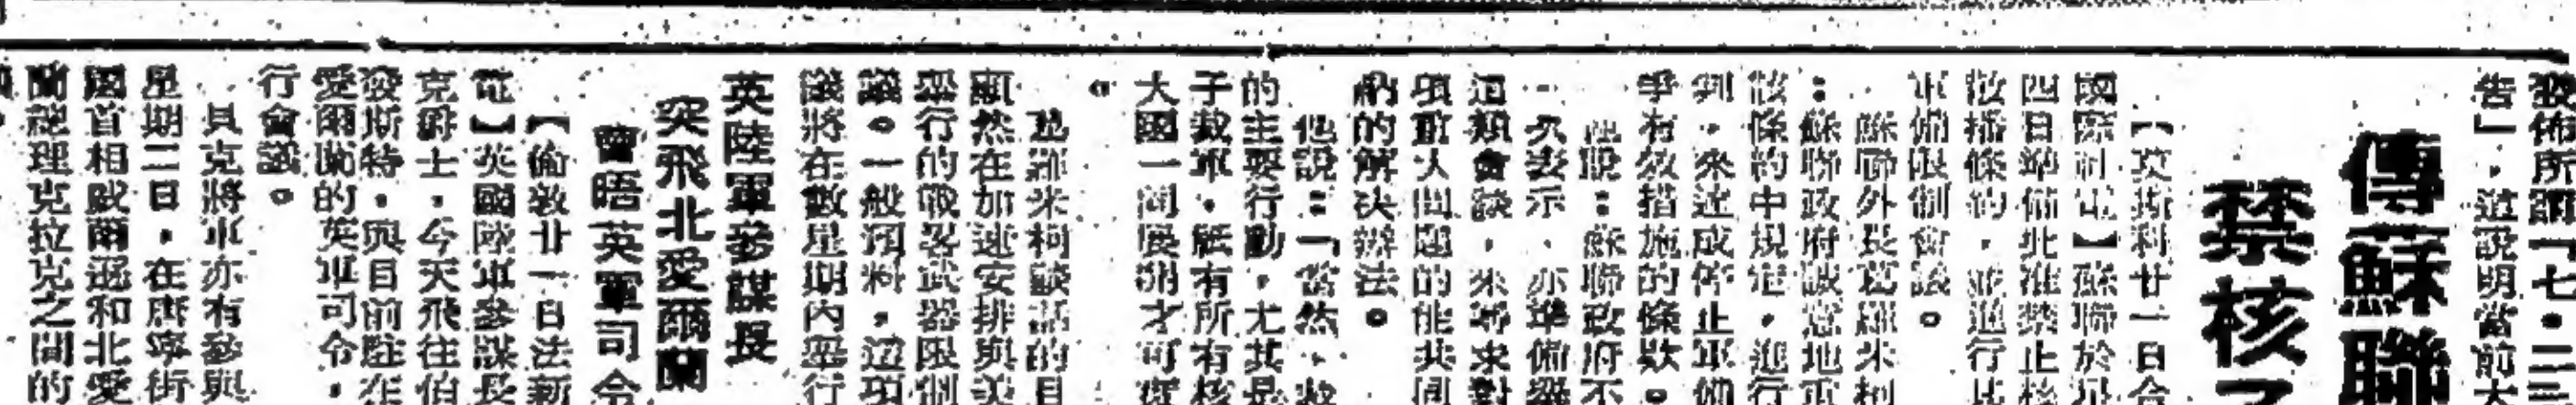 發佈所謂「七·二三
告」，這說明當前大
傳蘇聯
禁核子
【莫斯科廿一日合
國際社電】蘇聯於星
四日準備批准禁止核
散播條約，並進行其
軍備限制會議。
蘇聯外長葛羅米柯
：蘇聯政府誠意地重
該條約中規定，進行
判，來達成停止軍備
爭有效措施的條款。
他說：蘇聯政府不
一次表示，亦準備舉
這類會談，來尋求對
項重大問題的能共同
納的解決辦法。
他說：「當然，裁
的主要行動，尤其是
子裁軍，祗有所有核
大國一同展開才可實
。
葛羅米柯談話的目
顯然在加速安排與美
舉行的戰畧武器限制
議。一般預料，這項
議將在數星期內舉行
英陸軍參謀長
突飛北愛爾蘭
會晤英軍司令
【倫敦廿一日法新
電】英國陸軍參謀長
克爵士，今天飛往伯
發斯特，與目前駐在
愛爾蘭的英軍司令，
行會議。
貝克將軍亦有參與
星期二日，在唐寧街
國首相威爾遜和北愛
蘭總理克拉克之間的